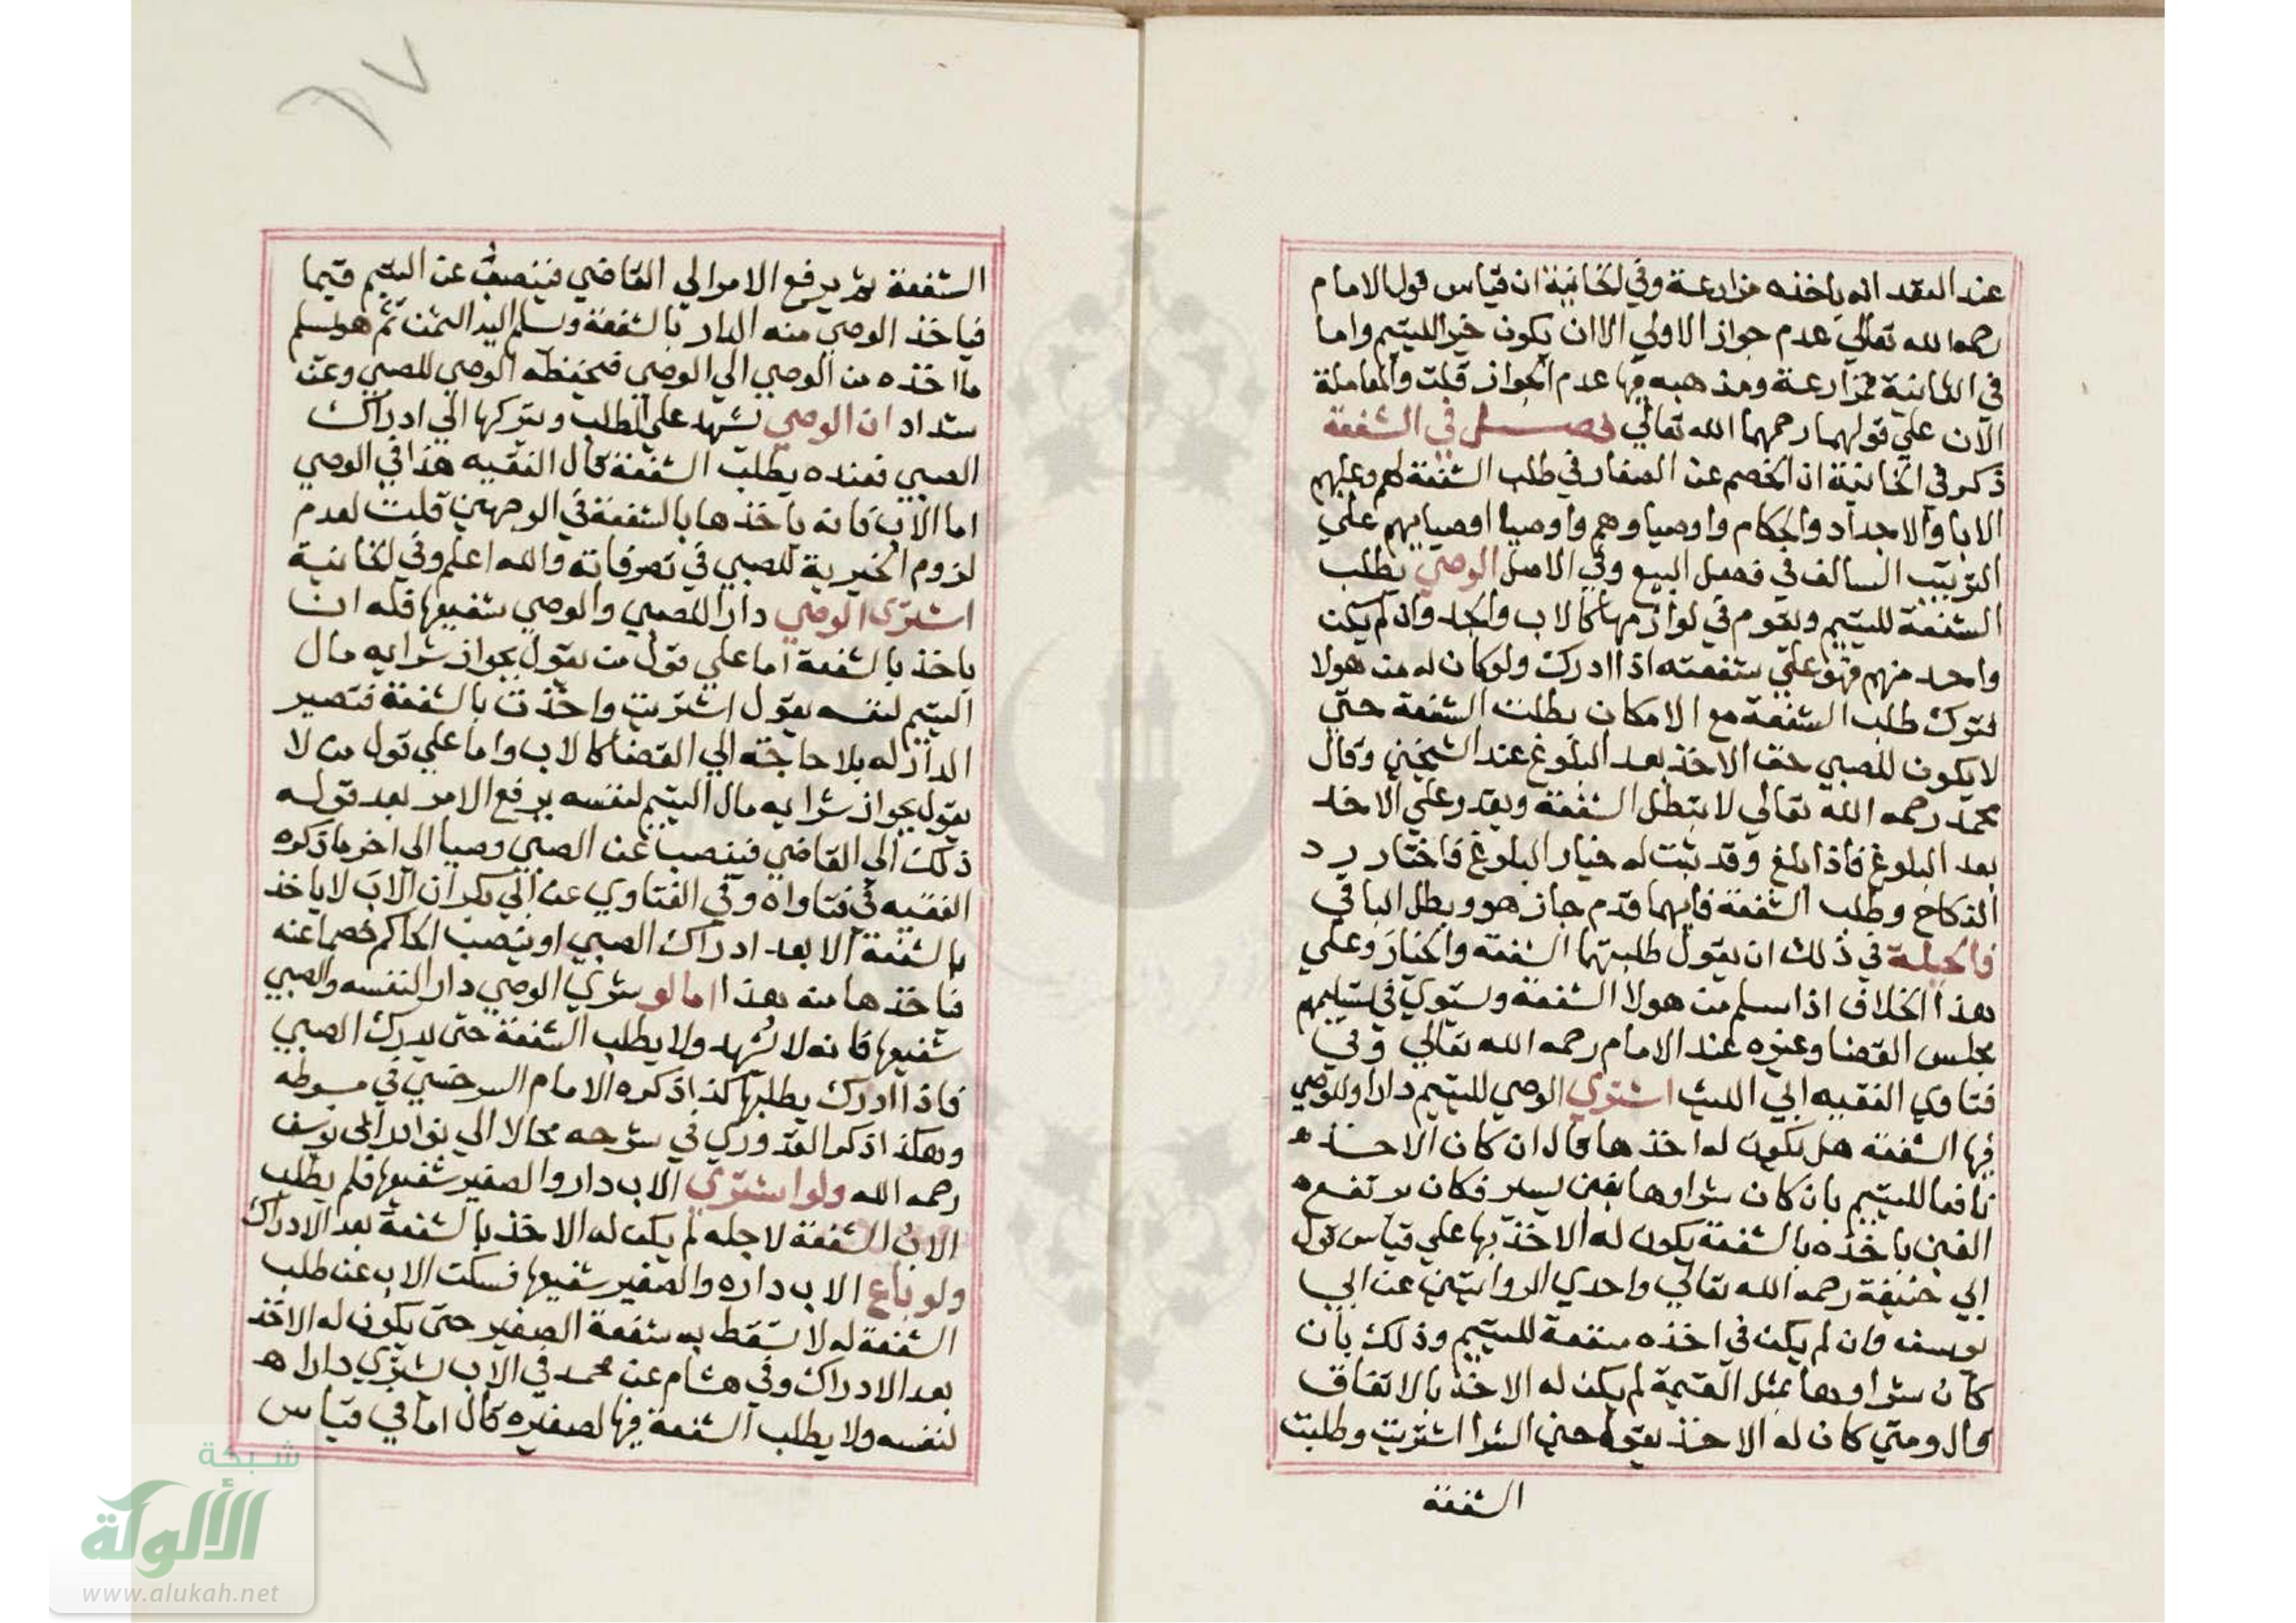 عند العقد انه ياخذه مزارعة وفي الخانية ان قياس قول الامام
رحمه الله تعالي عدم جواز الاولي الا ان يكون خيرا لليتيم واما
في الثانية فمزارعة ومذهبه فيها عدم الجواز قلت والمعاملة
الآن علي قولهما رحمهما الله تعالي فصل في الشفعة
ذكر في الخانية ان الخصم عن الصغار في طلب الشفعة لهم وعليهم
الابا والاجداد والحكام واوصياوهم واوصيا اوصيايهم علي
الترتيب السالف في فصل البيع وفي الاصل الوصي يطلب
الشفعة لليتيم ويقوم في لوازمها كالاب والجد وان لم يكن
واحد منهم فهو علي شفعته اذا ادرك ولو كان له من هولا
فترك طلب الشفعة مع الامكان بطلت الشفعة حتي
لا يكون للصبي حق الاخذ بعد البلوغ عند الشيخين وقال
محمد رحمه الله تعالي لا تبطل الشفعة ويقدر علي الاخذ
بعد البلوغ فاذا بلغ وقد ثبت له خيار البلوغ فاختار رد
النكاح وطلب الشفعة فايهما قدم جاز هو وبطل الباقي
فالحيلة في ذلك ان يقول طلبتهما الشفعة والخيار وعلي
هذا الخلاف اذا سلم من هولا الشفعة ويستوي في تسليمهم
مجلس القضا وغيره عند الامام رحمه الله تعالي وفي
فتاوي الفقيه ابي الليث اشتري الوصي لليتيم دارا وللوصي
فيها الشفعة هل يكون له اخذها قال ان كان الاخذ
نافعا لليتيم بان كان شراوها بغبن يسير فكان يرتفع
الغبن باخذه بالشفعة يكون له الاخذ بها علي قياس قول
ابي حنيفة رحمه الله تعالي واحدي الروايتين عن ابي
يوسف وان لم يكن في اخذه منفعة لليتيم وذلك بان
كان شراوها بمثل القيمة لم يكن له الاخذ بالاتفاق
قال ومتي كان له الاخذ يقول حين الشرا اشتريت وطلبت
الشفعة
٦٧
الشفعة ثم يرفع الامر الي القاضي فينصب عن اليتيم قيما
فياخذ الوصي منه الدار بالشفعة ويسلم اليه الثمن ثم هو يسلم
ما اخذه من الوصي الي الوصي فيحفظه الوصي للصبي وعن
شداد ان الوصي يشهد علي الطلب ويتركها الي ادراك
الصبي فعنده يطلب الشفعة قال الفقيه هذا في الوصي
اما الاب فانه ياخذها بالشفعة في الوجهين قلت لعدم
لزوم الخيرية للصبي في تصرفاته والله اعلم وفي الخانية
اشتري الوصي دارا للصبي والوصي شفيعها فله ان
ياخذ بالشفعة اما علي قول من يقول بجواز شرايه مال
اليتيم لنفسه يقول اشتريت واخذت بالشفعة فتصير
الدار له بلا حاجة الي القضا كالاب واما علي قول من لا
يقول بجواز شرايه مال اليتيم لنفسه يرفع الامر بعد قوله
ذلك الي القاضي فينصب عن الصبي وصيا الي اخر ما ذكره
الفقيه في فتاواه وفي الفتاوي عن ابي بكر ان الاب لا ياخذ
بالشفعة الا بعد ادراك الصبي او ينصب الحاكم خصما عنه
فياخذها منه بعد اما لو شري الوصي دارا لنفسه والصبي
شفيعها فانه لا يشهد ولا يطلب الشفعة حتي يدرك الصبي
فاذا ادرك يطلبها كذا ذكره الامام السرخسي في مبسوطه
وهكذا ذكر القدوري في شرحه محالا الي نوادر ابي يوسف
رحمه الله ولو اشتري الاب دارا والصغير شفيعها فلم يطلب
الاب الشفعة لاجله لم يكن له الاخذ بالشفعة بعد الادراك
ولو باع الاب داره والصغير شفيعها فسكت الاب عن طلب
الشفعة له لا تسقط به شفعة الصغير حتي يكون له الاخذ
بعد الادراك وفي هشام عن محمد في الاب يشتري دارا
لنفسه ولا يطلب الشفعة فيها لصغيره قال اما في قياس
شبكة
الألوكة
www.alukah.net